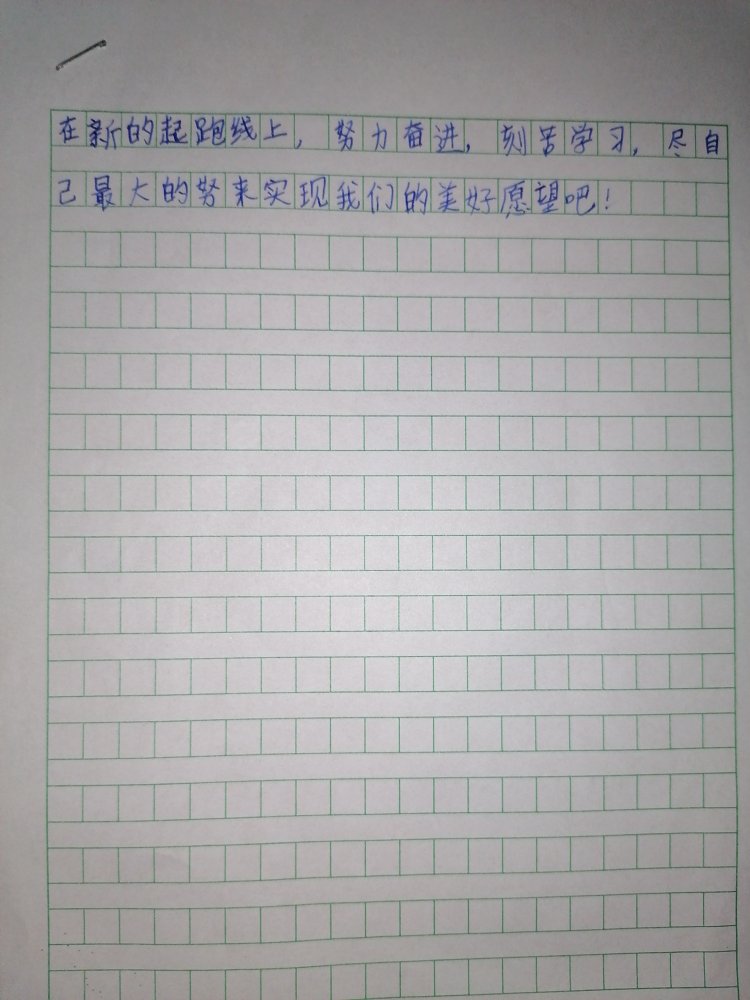 在新的起跑线上，努力奋进，刻苦学习，尽自
己最大的努来实现我们的美好愿望吧！